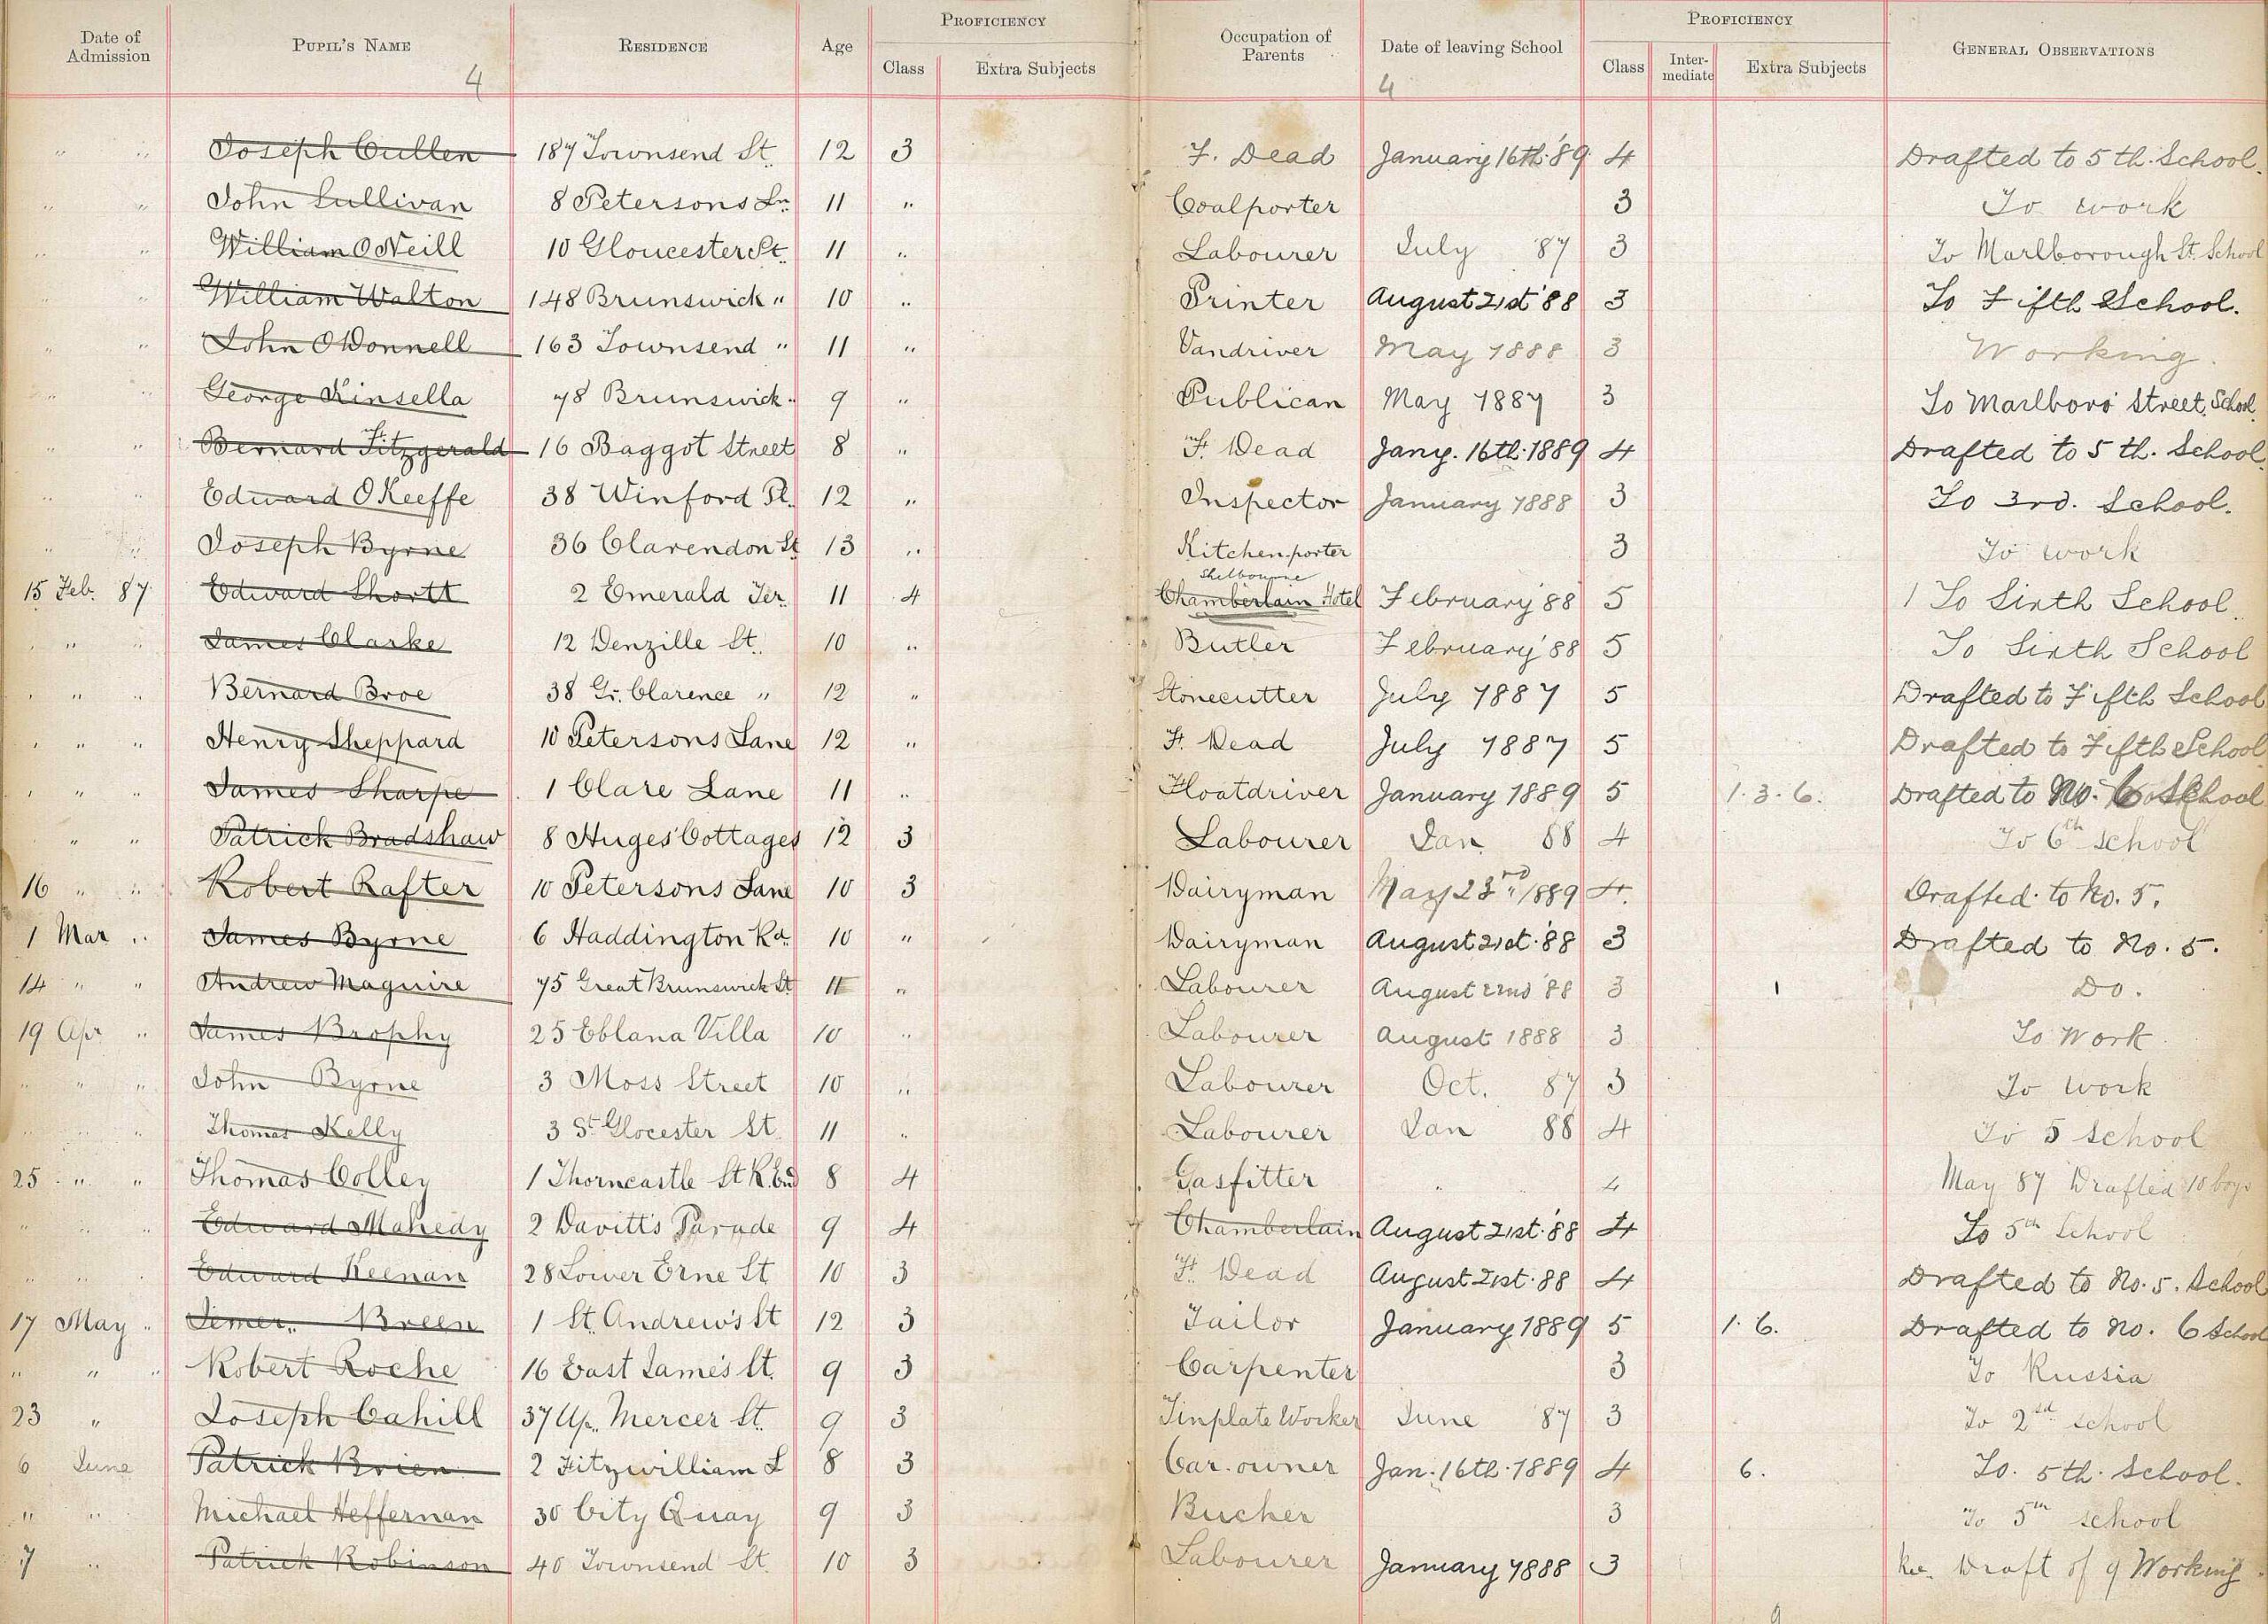 Date of Admission PUPIL'S NAME RESIDENCE Age PROFICIENCY Class Extra Subjects Occupation of Parents Date of leaving School PROFICIENCY Class Inter-mediate Extra Subjects GENERAL OBSERVATIONS
4 4
" " Joseph Cullen 187 Townsend St. 12 3 F. Dead January 16th '89 4 Drafted to 5th School.
" " John Sullivan 8 Petersons Ln 11 " Coalporter 3 To work
" " William O'Neill 10 Gloucester St. 11 " Labourer July '87 3 To Marlborough St. School
" " William Walton 148 Brunswick " 10 " Printer August 21st '88 3 To Fifth School.
" " John O'Donnell 163 Townsend " 11 " Vandriver May 1888 3 Working.
" " George Kinsella 78 Brunswick " 9 " Publican May 1887 3 To Marlboro' Street School
" " Bernard Fitzgerald 16 Baggot Street 8 " F. Dead Jany. 16th. 1889 4 Drafted to 5th. School.
" " Edward O'Keeffe 38 Winford Pl. 12 " Inspector January 1888 3 To 3rd. School.
" " Joseph Byrne 36 Clarendon St 13 " Kitchen porter 3 To work
15 Feb. 87 Edward Shortt 2 Emerald Ter. 11 4 Chamberlain Shelbourne Hotel February '88 5 1 To Sixth School.
" " James Clarke 12 Denzille St. 10 " Butler February '88 5 To Sixth School
" " Bernard Broe 38 Gr. Clarence " 12 " Stonecutter July 1887 5 Drafted to Fifth School
" " Henry Sheppard 10 Petersons Lane 12 " F. Dead July 1887 5 Drafted to Fifth School
" " James Sharpe 1 Clare Lane 11 " Floatdriver January 1889 5 1. 3. 6. Drafted to No. 6 School
" " Patrick Bradshaw 8 Huges' Cottages 12 3 Labourer Jan 88 4 To 6th school
16 " " Robert Rafter 10 Petersons Lane 10 3 Dairyman May 23rd 1889 4. Drafted to No. 5.
1 Mar " James Byrne 6 Haddington Rd. 10 " Dairyman August 21st. '88 3 Drafted to No. 5.
14 " " Andrew Maguire 75 Great Brunswick St 11 " Labourer August 22nd '88 3 1 Do.
19 Apr " James Brophy 25 Eblana Villa 10 " Labourer August 1888 3 To Work
" " " John Byrne 3 Moss Street 10 " Labourer Oct. 87 3 To work
" " " Thomas Kelly 3 St Glocester St. 11 " Labourer Jan 88 4 To 5 School
25 " " Thomas Colley 1 Thorncastle St R. End 8 4 Gasfitter " 4 May 87 Drafted 10 boys
" " " Edward Mahedy 2 Davitt's Parade 9 4 Chamberlain August 21st. '88 4 To 5th School
" " " Edward Keenan 28 Lower Erne St 10 3 F. Dead August 21st. 88 4 Drafted to No. 5. School
17 May " Breen 1 St. Andrew's St 12 3 Tailor January 1889 5 1. 6. Drafted to No. 6 School
" " " Robert Roche 16 East James St. 9 3 Carpenter 3 To Russia
23 " Joseph Cahill 37 Up. Mercer St. 9 3 Tinplate Worker June 87 3 To 2nd school
6 June Patrick Brien 2 Fitzwilliam L 8 3 Car. owner Jan. 16th. 1889 4 6. To. 5th. School.
" " Michael Heffernan 30 City Quay 9 3 Bucher 3 To 5th school
7 " Patrick Robinson 40 Townsend St. 10 3 Labourer January 1888 3 Draft of 9 Working.
9